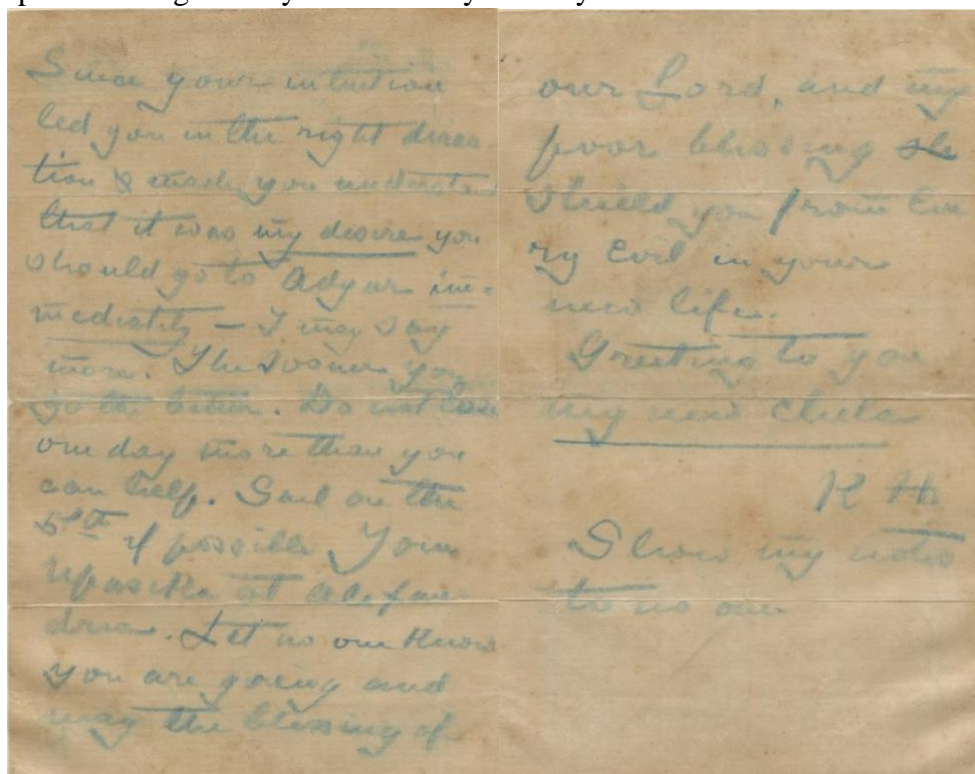 Since your intuition
led you in the right direc
tion & made you understand
that it was my desire you
should go to Adyar im-
mediately – I may say
more. The sooner you
go the better. Do not lose
one day more than you
can help. Sail on the
5th if possible Join
Upasika at Alexan
dria. Let no one know
you are going and
may the blessing of
our Lord, and my
poor blessing sh
shield you from Eve
ry Evil in your
new life.
Greeting to you
my new chela
K H
Show my notes
to no one